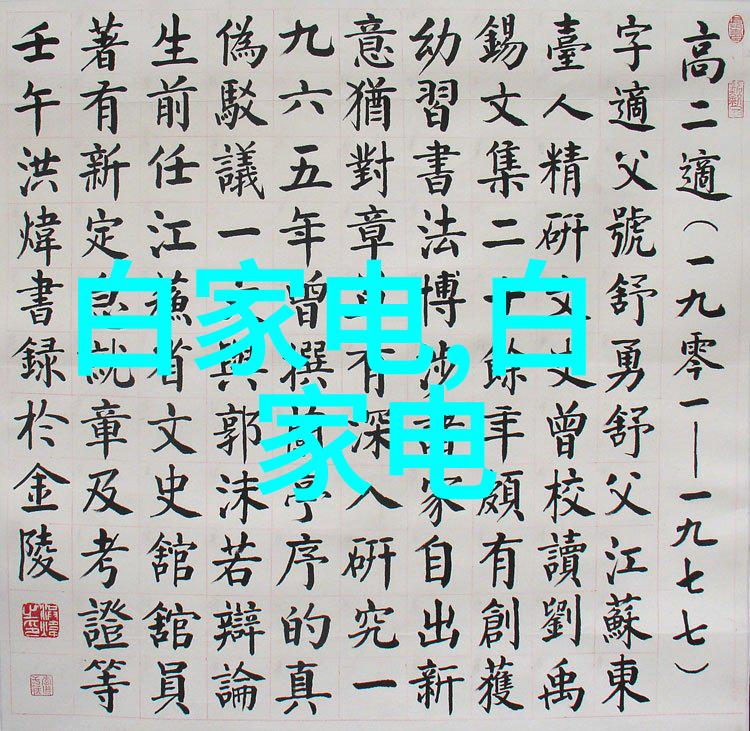 高二適（一九零一—一九七七）
字適父號舒勇舒父江蘇東
臺人精研文史曾校讀劉禹
錫文集二十餘年頗有創獲
幼習書法博涉家自出新
意猶對章草有深入研究一
九六五年曾撰蘭亭序的真
偽駁議一文與郭沫若辯論
生前任江蘓省文史舘舘員
著有新定急就章及考證等
壬午洪煒書録於金陵
白家电,白
家电